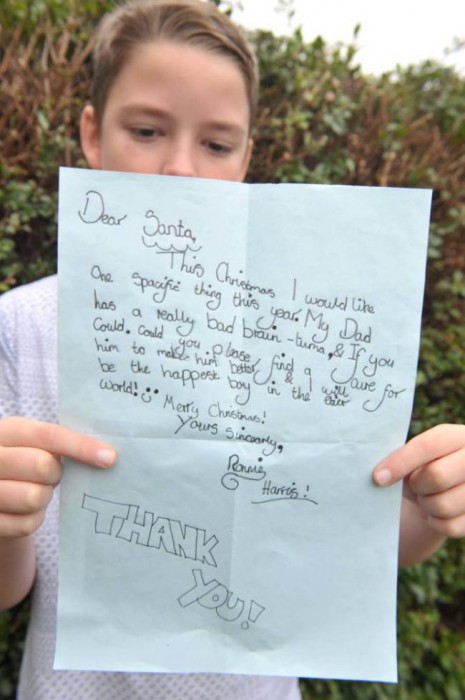 Dear Santa,
This Christmas I would like
One spacific thing this year. My Dad
has a really bad brain-tuma, & If you
Could. could you please find a cure for
him to make him better & I will
be the happest boy in the ever
world! :)
Merry Christmas!
Yours Sincearly,
Ronnie
Harris!
THANK
YOU!